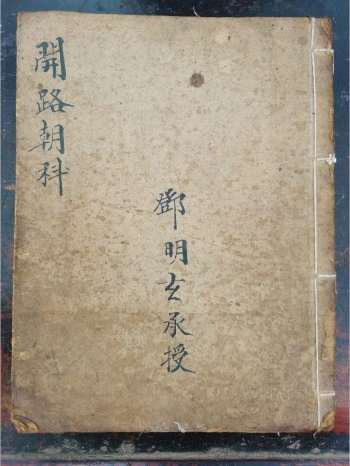 開路朝科
鄧明玄承授